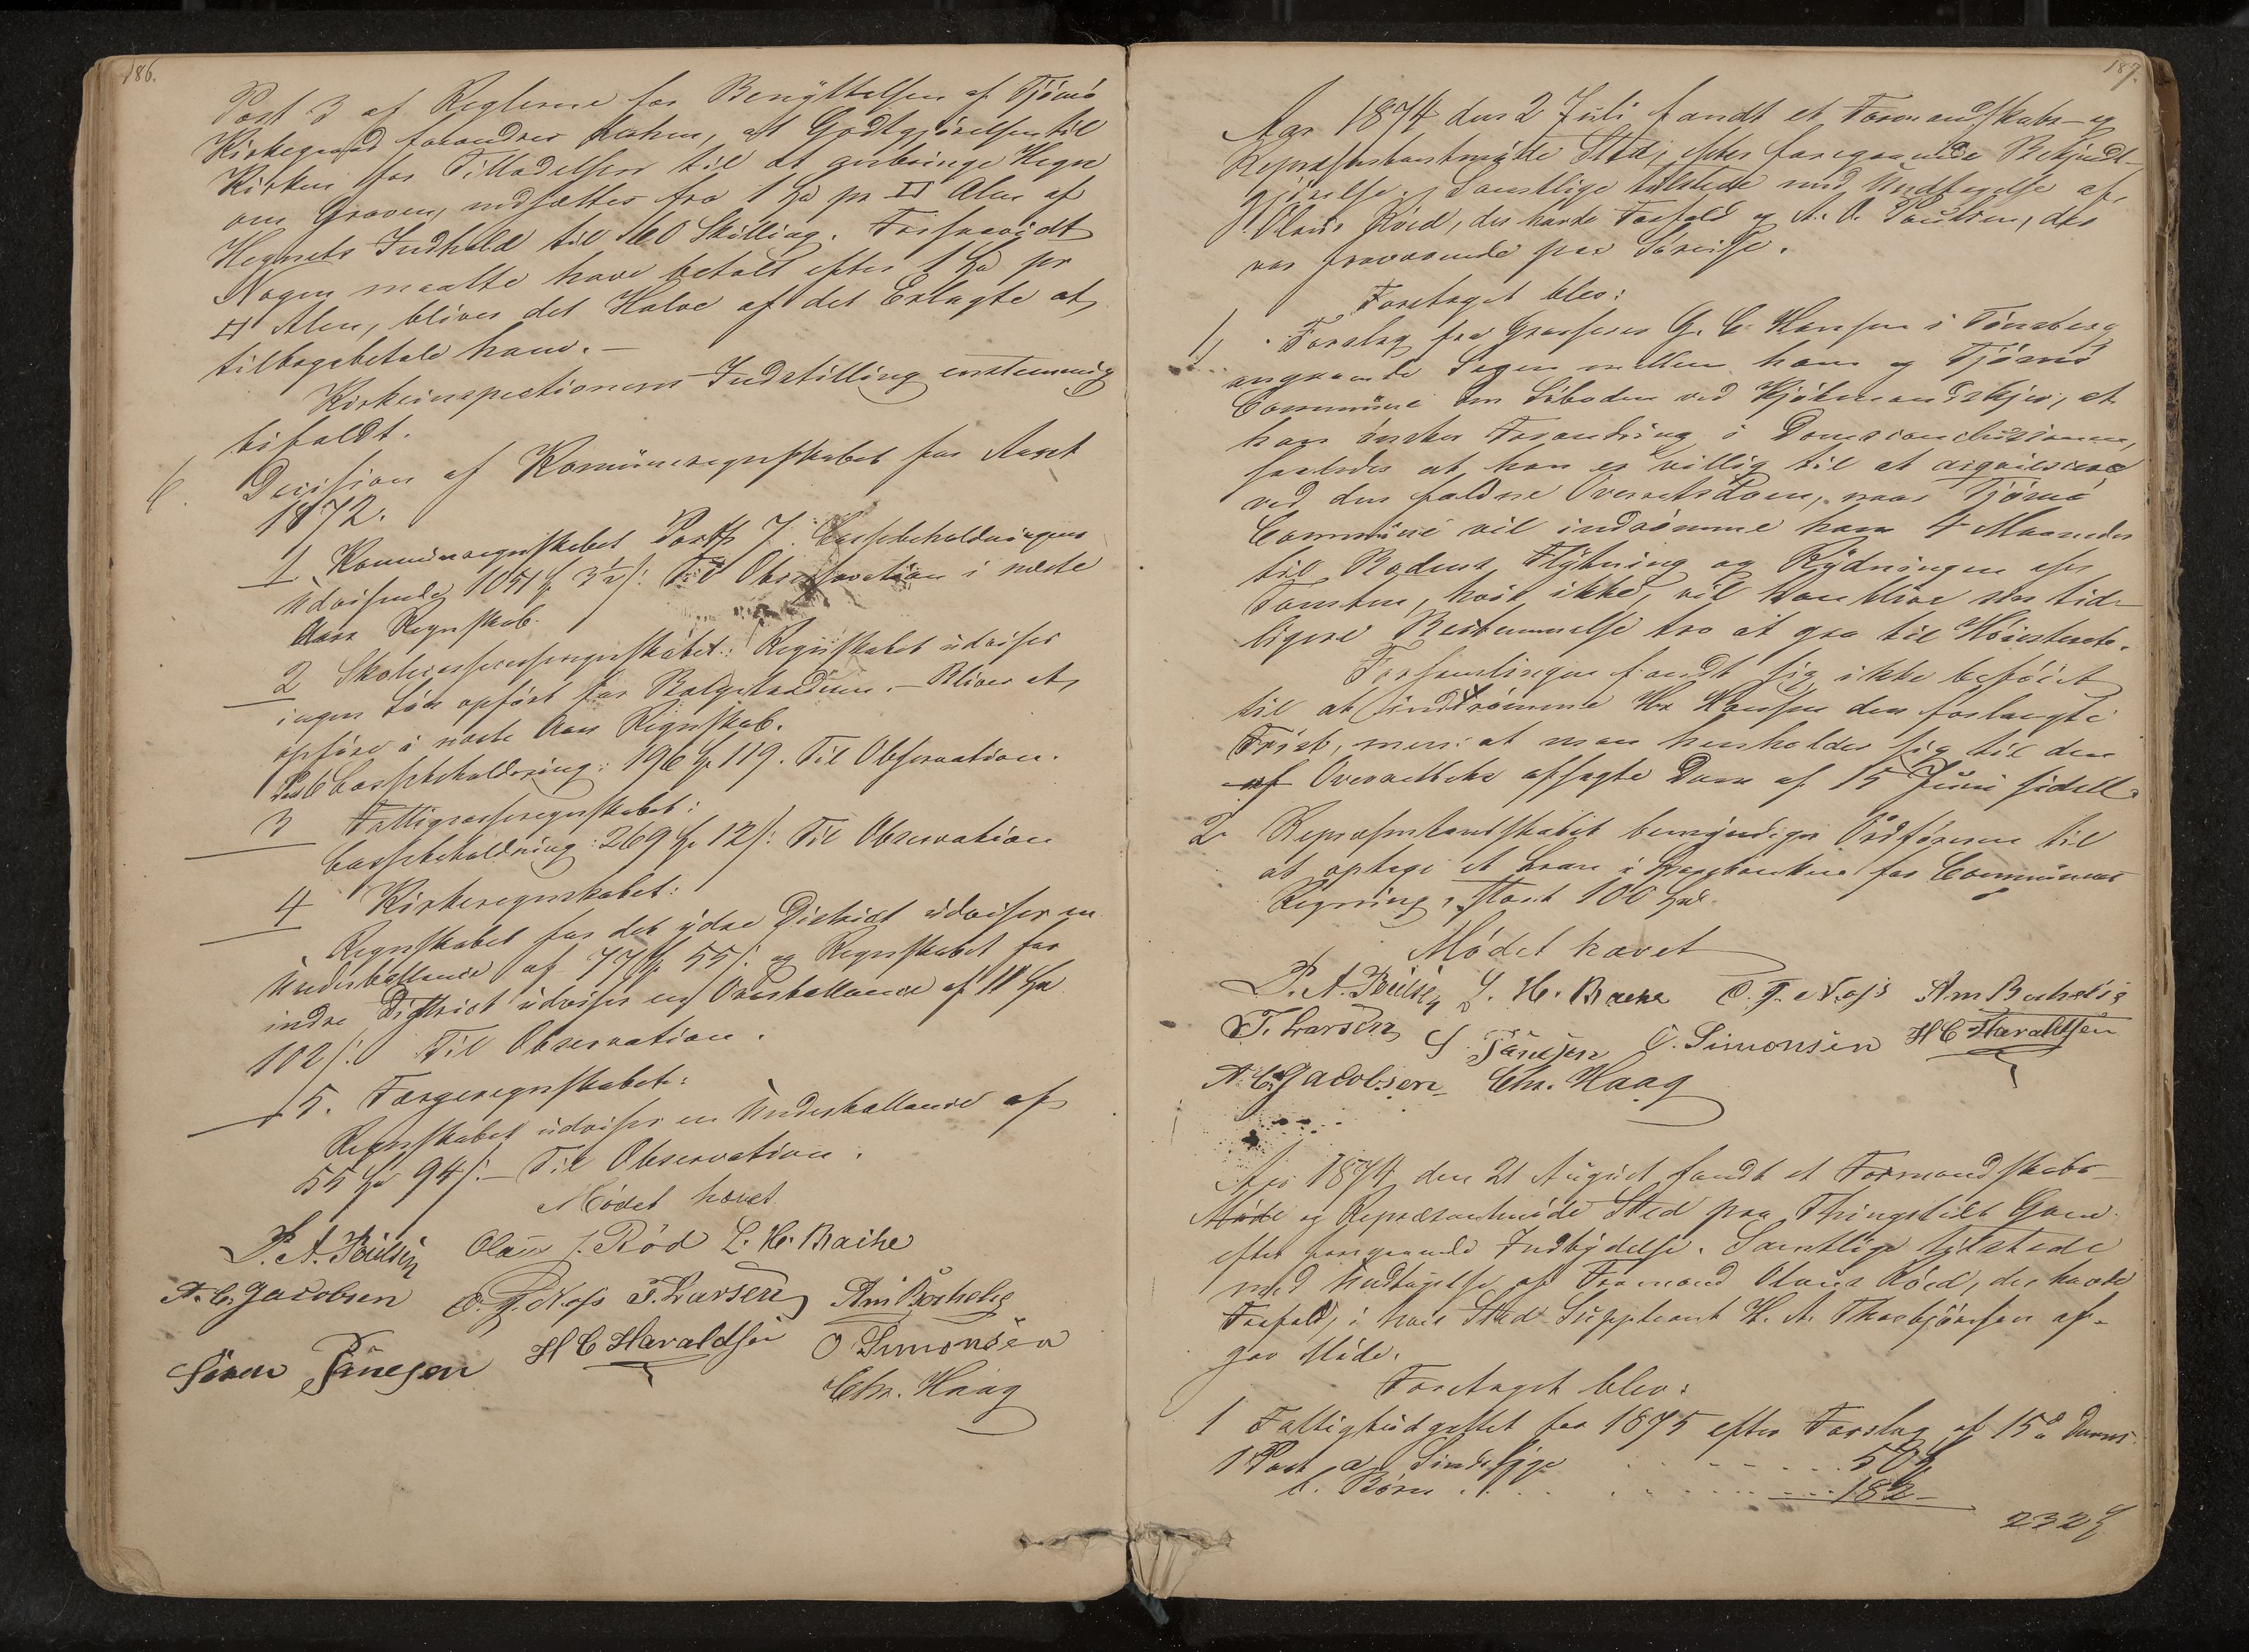 186.
Post 3 af Reglerne for Benyttelsen af Tjömö
Kirkegaard forandres saaledes, at Godtgjörelsen til
Kirken for Tilladelsen til at anbringe Hegn
om Graven, nedsættes fra 1 Spd pr □ Alen af
Hegnets Indhold til 60 Skilling. Forsaavidt
Nogen maatte have betalt efter 1 Spd pr
□ Alen, bliver det Halve af det Erlagte at
tilbagebetale ham. –
Kirkeinspectionens Indstilling enstemmig
bifaldt.
6. Decision af Komüneregnskabet for Aaret
1872.
1 Komüneregnskabet Post 7. Cassebeholdningen
üdvisende 1051 3½ s: Til Observation i næste
Aars Regnskab.
2 Skolecasseregnskabet: Regnskabet üdviser
ingen Lön opfört for Bolgstadium. – Bliver at
opföre i næste Aars Regnskab.
Cassebeholdning: 196 Sp 119. Til Observation.
3 Fattigcasseregnskabet:
Cassebeholdning: 269 Sp 12 s: Til Observation
4 Kirkeregnskabet:
Regnskabet for det ydre District üdviser en
Underballance af 77 Sp 55 s: og Regnskabet for
indre District üdviser en Overballance af 11 Spd
102 s: Til Observation.
5. Færgeregnskabet:
Regnskabet üdviser en Underballance af
55 Spd 94 s. – Til Observation.
Mödet hævet
P. A. Poulsen Olaus J. Röd L. H. Backe
A. C. Jacobsen O. G. Næss T. Larsen Am Bücholtz
Sören Jönesen H C Haraldsen O Simonsen
Chr. Haag
187.
Aar 1874 den 2 Juli fandt et Formandskabs- og
Repræsentantmöde Sted, efter foregaaende Bekjendt-
gjörelse. Samtlige tilstede med Undtagelse af
Olaus Röed, der havde Forfald og A. A. Paulsen, der
var fraværende paa Söreise.
Foretaget blev:
1, Forslag fra Grosserer G. C. Hansen i Tönsberg
angaaende Sagen mellem ham og Tjömö
Commüne om Söboden ved Kjöbmandskjær, at
han önsker Forandring i Domsconclusionen,
saaledes at han er villig til at acquiescere
ved den faldne Overretsdom, naar Tjömö
Commüne vil indrömme ham 4 Maaneder
til Bodens Flytning og Rydningen af
Tomten, hvis ikke, vil han blive sin tid-
ligere Bestemmelse tro at gaa til Höiesteret.
Forsamlingen fandt sig ikke beföiet
til at indrömme Hr Hansen den forlangte
Frist, men at man henholder sig til den
af Overretten afsagte Dom af 15 Juni sidstl.
2 Repræsentantskabet bemyndiger Ordföreren til
at optage et Laan i Sparebanken for Communens
Regning, stort 100 Spd.
Mödet hævet
P. A. Poulsen L. H. Backe O. G. Næss Am Bucholtz
T. Larsen S. Jönesen O. Simonsen H C Haraldsen
A. C. Jacobsen Chr. Haag
Aar 1874 den 21 August fandt et Formandskabs-
Möde og Repræsentmöde Sted paa Thingstedet Grim
efter foregaaende Indbydelse. Samtlige tilstede
med Undtagelse af Formand Olaus Röed, der havde
Forfald, i hvis Sted Suppleant H. A. Thorbjörnsen af-
gav Möde.
Foretaget blev:
1 Fattigbudgettet for 1875 efter Forslag af 15de dennes.
1 Post a, Sindssyge . . . . . 50
b. Börn . . . . . 182 –
232